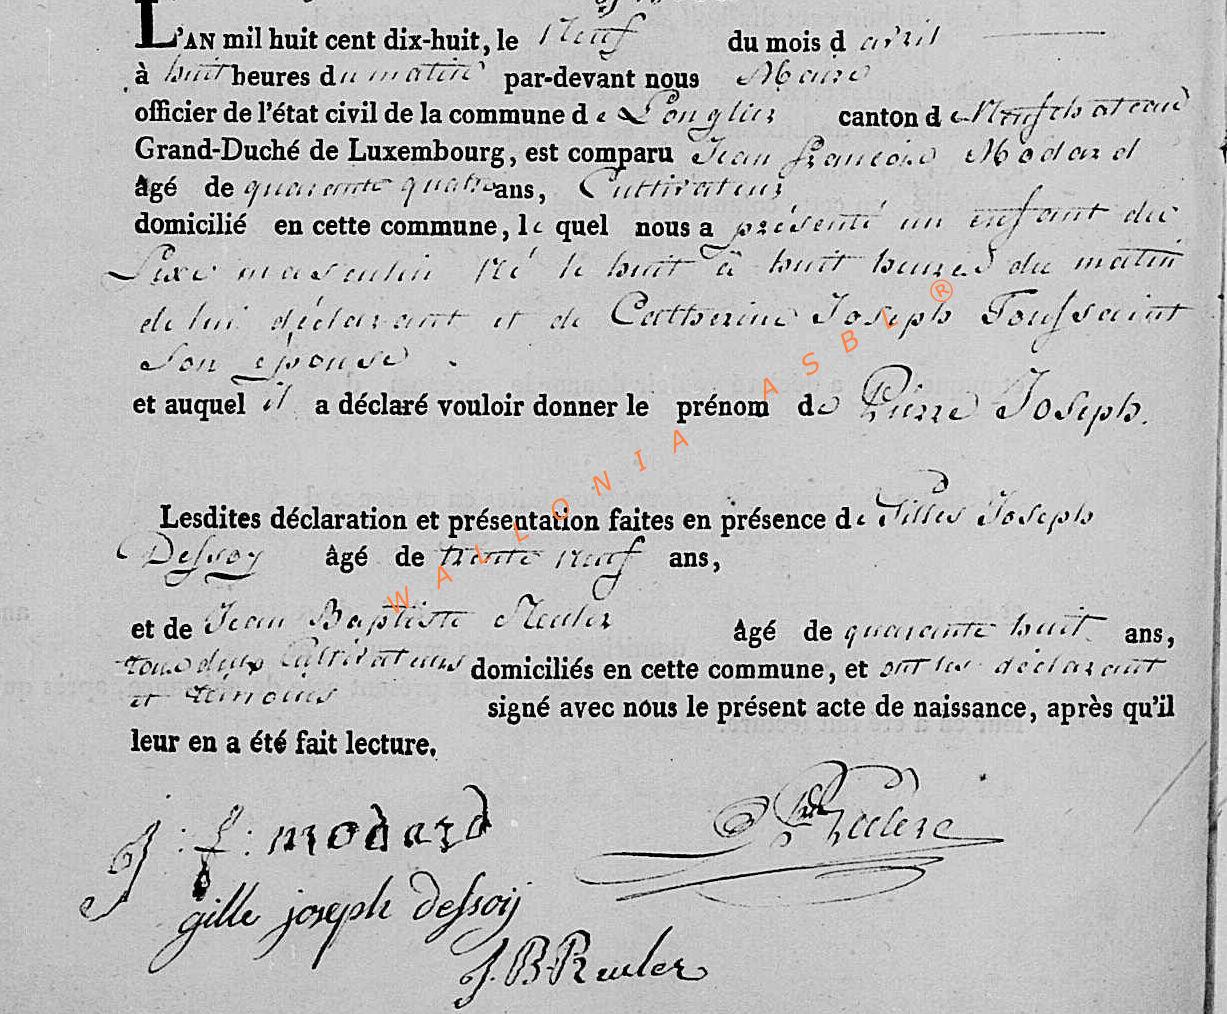 L'AN mil huit cent dix-huit, le Neuf du mois d avril
à huit heures du matin par-devant nous Maire
officier de l'état civil de la commune de Longlier canton de Neufchateau
Grand-Duché de Luxembourg, est comparu Jean françois Modard
âgé de quarante quatre ans, Cultivateur
domicilié en cette commune, le quel nous a présenté un enfant du
Sexe masculin Né le huit à huit heures du matin
de lui déclarant et de Catherine Joseph Toussaint
Son épouse.
et auquel il a déclaré vouloir donner le prénom de Pierre Joseph.
Lesdites déclaration et présentation faites en présence de Gilles Joseph
Dessoy âgé de trente neuf ans,
et de Jean Baptiste Reuler âgé de quarante huit ans,
tous deux Cultivateurs domiciliés en cette commune, et ont les déclarant
et témoins signé avec nous le présent acte de naissance, après qu'il
leur en a été fait lecture.
J: f: modard
gille joseph dessoij
J. B. Reuler
WALLONIA ASBL ®